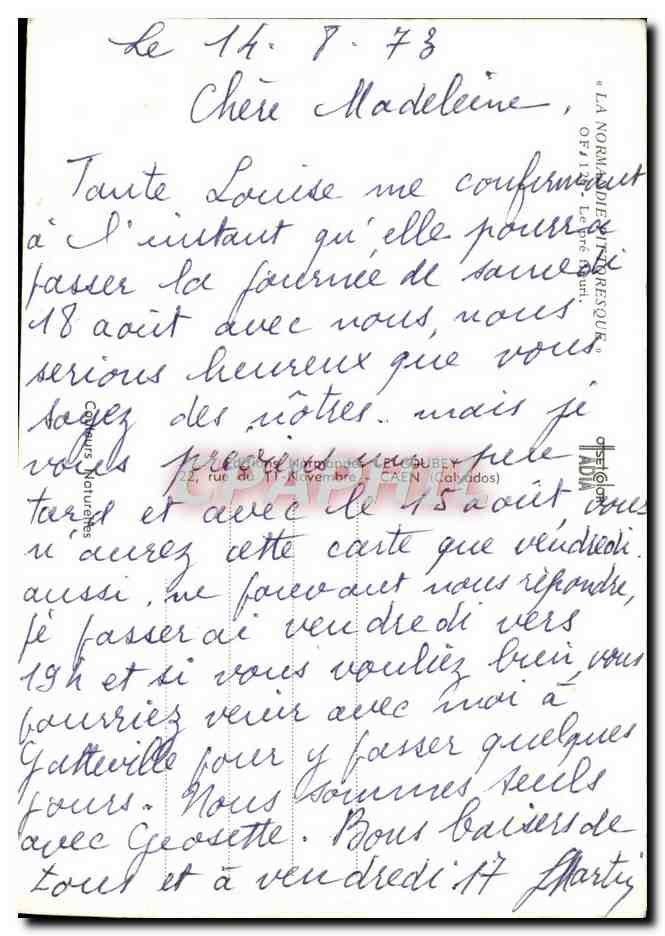 Le 14.8.73
Chère Madeleine,
Tante Louise me confirmant
à l'instant qu'elle pourra
passer la journée de samedi
18 août avec nous, nous
serions heureux que vous
soyez des nôtres. mais je
vous préviens un peu
tard et avec le 15 août, vous
n'aurez cette carte que vendredi.
aussi, ne pouvant nous répondre,
je passerai vendredi vers
19h et si vous vouliez bien, vous
pourriez venir avec moi à
Gatteville pour y passer quelques
jours. Nous sommes seuls
avec Geosette. Bons baisers de
tous et à vendredi 17 JMartin
« LA NORMANDIE PITTORESQUE »
- Le pré fleuri.
OFFSETCOLOR
IADIA
Couleurs Naturelles
Editions Normandes LE GOUBEY
22, rue du 11 Novembre - CAEN (Calvados)
CPAPHIL